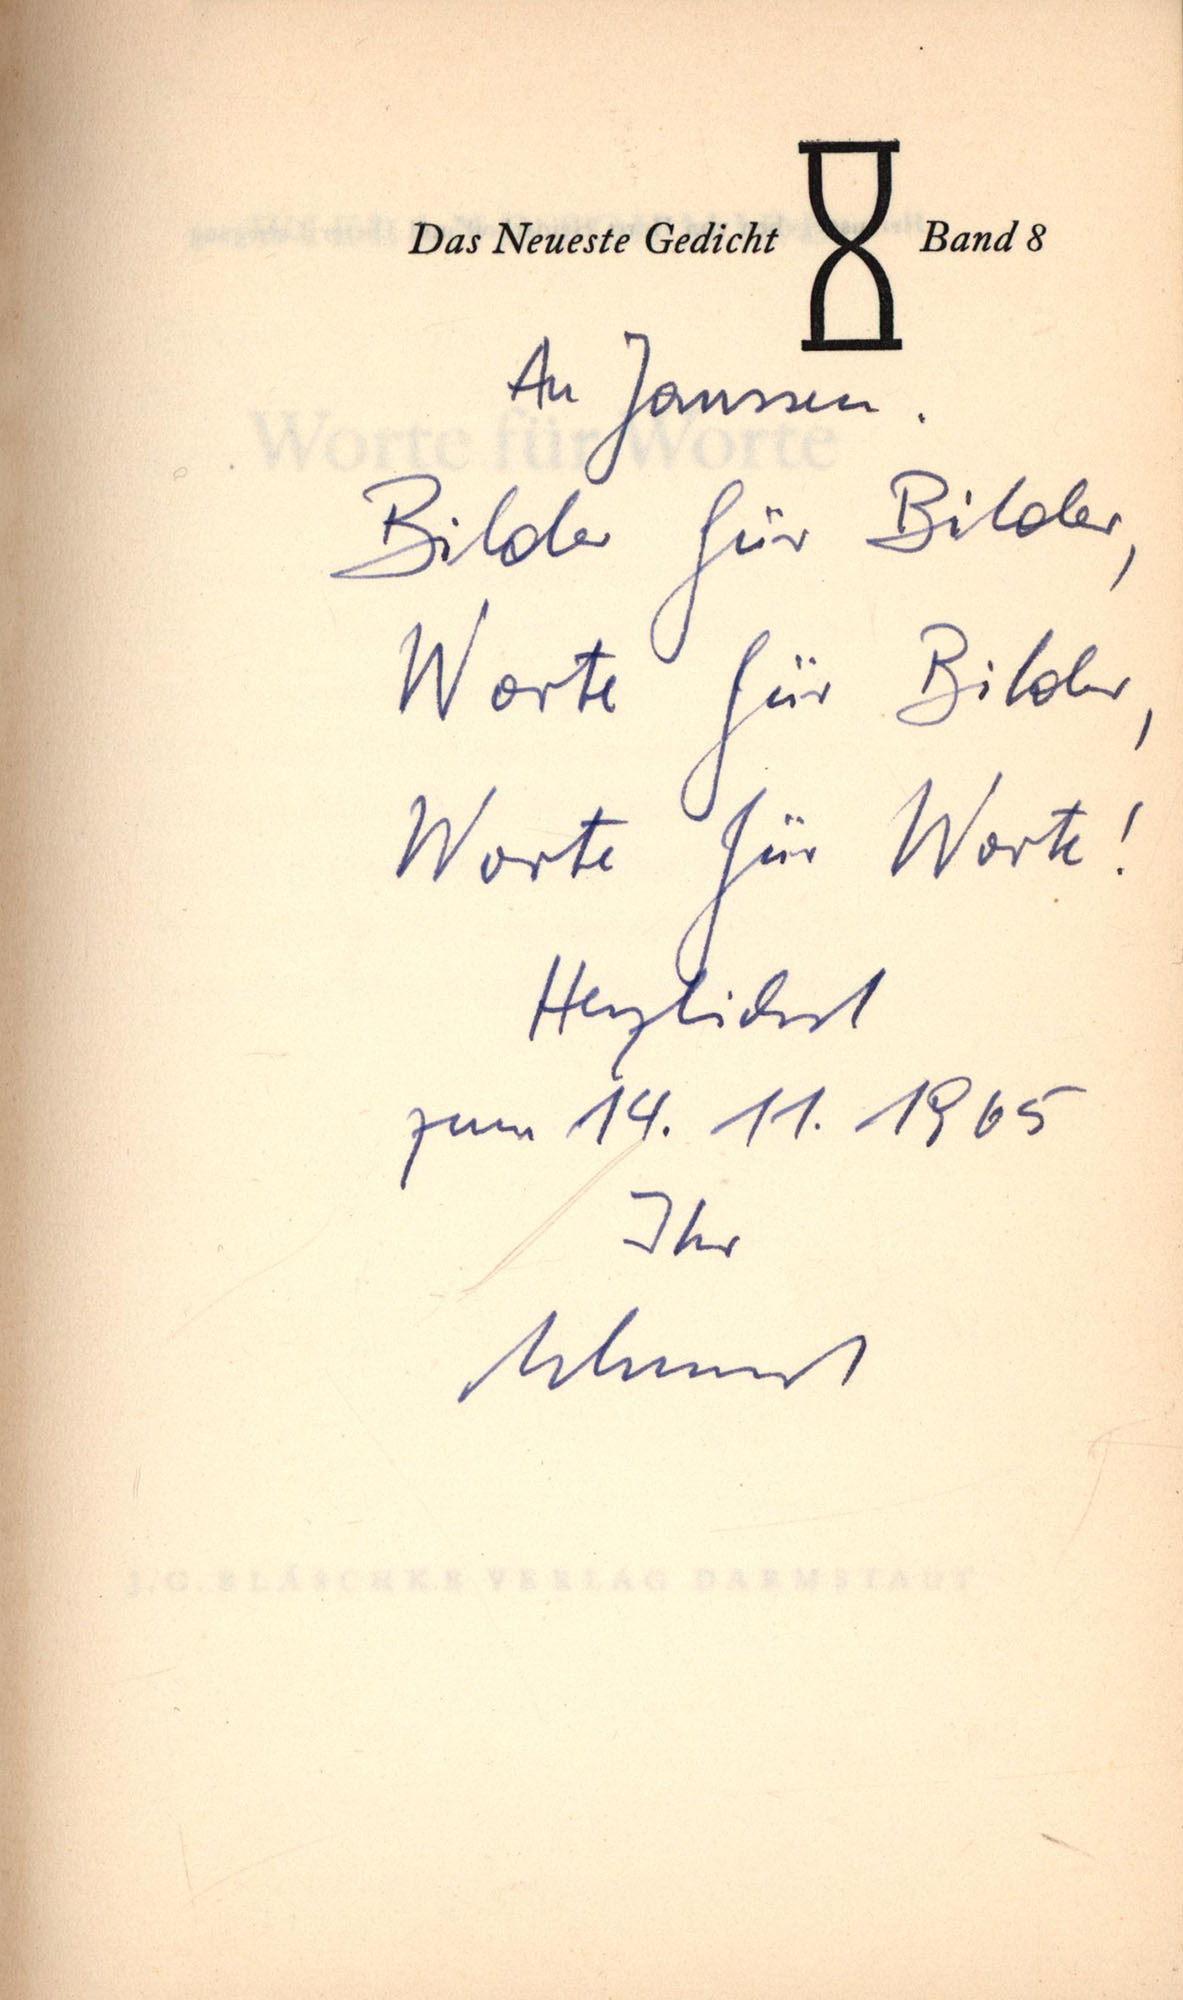 Das Neueste Gedicht Band 8
An Janssen.
Worte für Worte
Bilder für Bilder,
Worte für Bilder,
Worte für Worte!
Herzlichst
zum 14. 11. 1965
Ihr
J. G. BLÄSCHKE VERLAG DARMSTADT